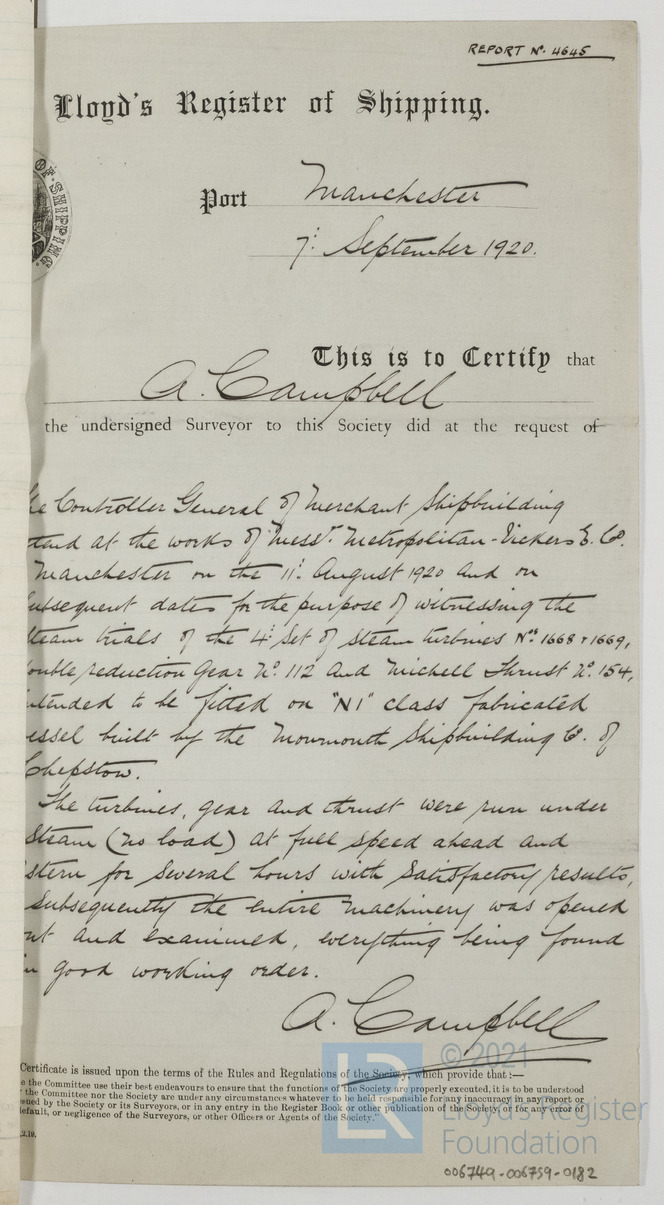 REPORT Nº 4645
Lloyd's Register of Shipping.
OF. SHIPPING.
Port Manchester
7: September 1920.
This is to Certify that
A. Campbell
the undersigned Surveyor to this Society did at the request of
he Controller General of Merchant Shipbuilding
ttend at the works of Messrs. Metropolitan-Vickers E. Co.
Manchester on the 11: August 1920 and on
ubsequent dates for the purpose of witnessing the
steam trials of the 4: Set of steam turbines Nos. 1668 & 1669,
ouble reduction gear No. 112 and Michell Thrust No. 154,
ntended to be fitted on "N1" class fabricated
essel built by the Monmouth Shipbuilding Co. of
Chepstow.
The turbines, gear and thrust were run under
steam (no load) at full speed ahead and
stern for several hours with satisfactory results,
subsequently the entire machinery was opened
ut and examined, everything being found
in good working order.
A. Campbell
Certificate is issued upon the terms of the Rules and Regulations of the Society, which provide that:—
e the Committee use their best endeavours to ensure that the functions of the Society are properly executed, it is to be understood
the Committee nor the Society are under any circumstances whatever to be held responsible for any inaccuracy in any report or
sued by the Society or its Surveyors, or in any entry in the Register Book or other publication of the Society, or for any error of
default, or negligence of the Surveyors, or other Officers or Agents of the Society."
© 2021
LR
Lloyd's Register
Foundation
006749-006759-0182